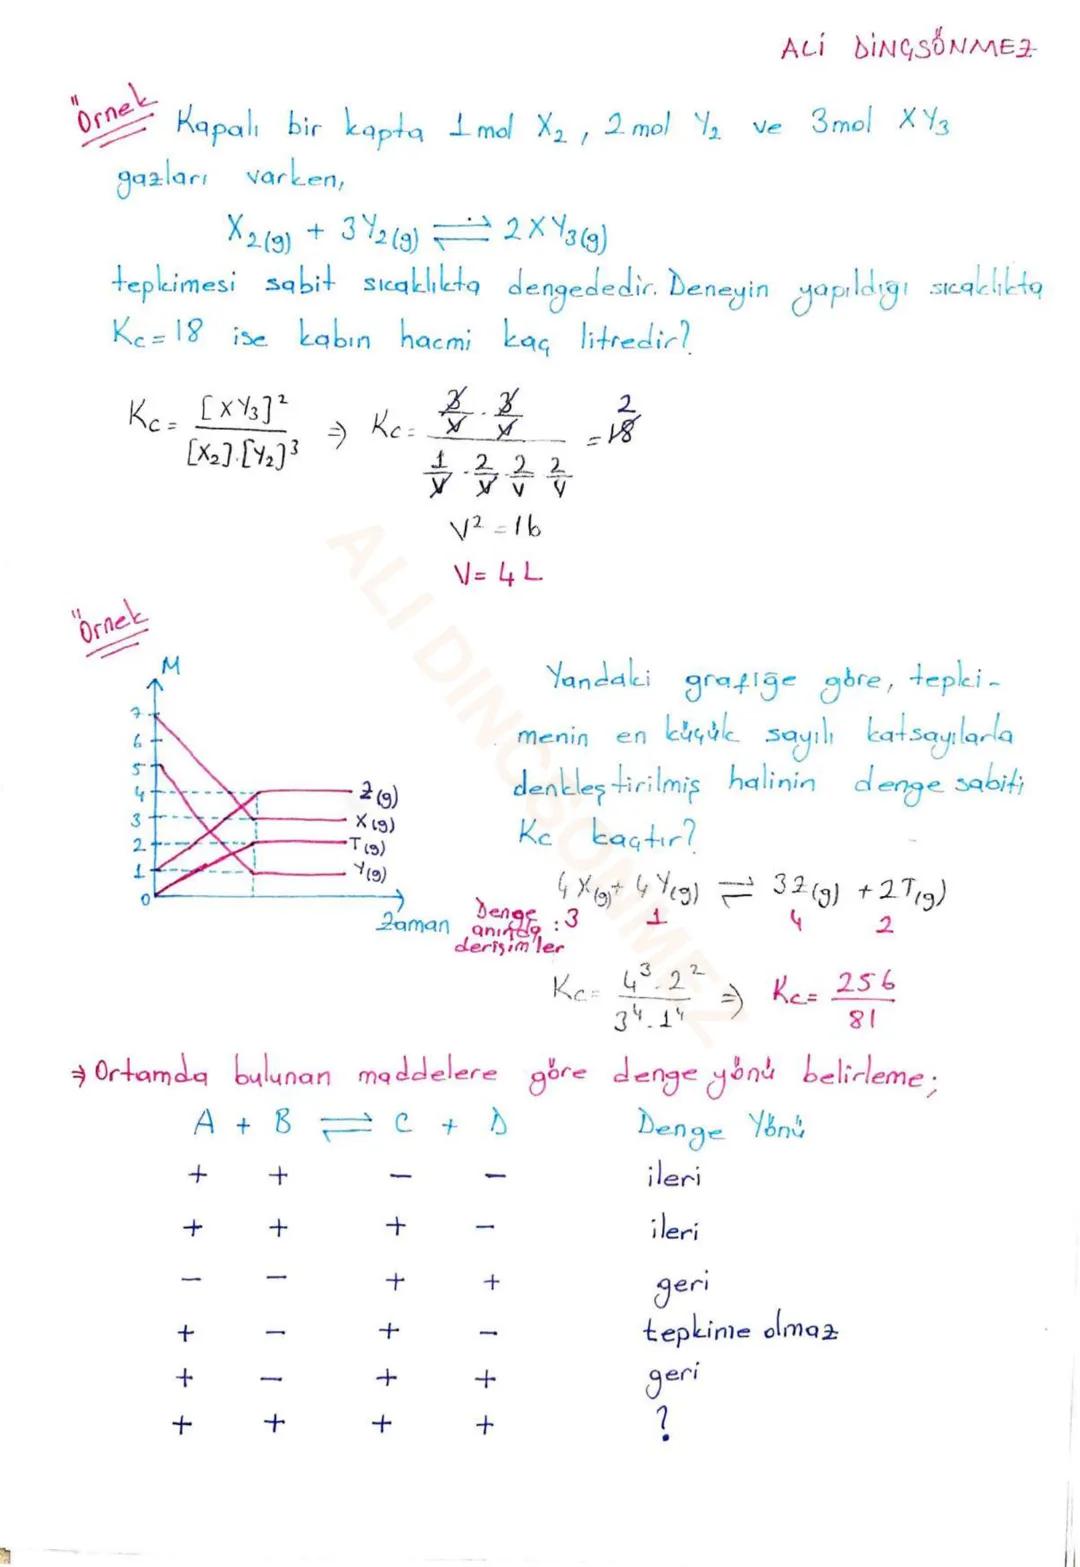 ALİ DİNÇSÖNMEZ
Örnek
Kapalı bir kapta 1 mol X₂, 2 mol Y₂ ve 3 mol XY₃
gazları varken,
X₂(g) + 3Y₂(g) ⇌ 2XY₃(g)
tepkimesi sabit sıcaklıkta dengededir. Deneyin yapıldığı sıcaklıkta
Kc = 18 ise kabın hacmi kaç litredir?
Kc = [XY₃]² / [X₂].[Y₂]³ ⇒ Kc = (3/V . 3/V) / (1/V . 2/V . 2/V . 2/V) = 18 2
V² = 16
V = 4 L
Örnek
M
7
6
5
4
3
2
1
0
Z(g)
X(g)
T(g)
Y(g)
Zaman
Yandaki grafiğe göre, tepki-
menin en küçük sayılı katsayılarla
denkleştirilmiş halinin denge sabiti
Kc kaçtır?
4X(g) + 4Y(g) ⇌ 3Z(g) + 2T(g)
Denge anında derişimler : 3 1 4 2
Kc = 4³.2² / 3⁴.1⁴ ⇒ Kc = 256 / 81
⇒ Ortamda bulunan maddelere göre denge yönü belirleme;
A + B ⇌ C + D Denge Yönü
+ + − − ileri
+ + + − ileri
− − + + geri
+ − + − tepkime olmaz
+ − + + geri
+ + + + ?
ALI DINCSONMEZ